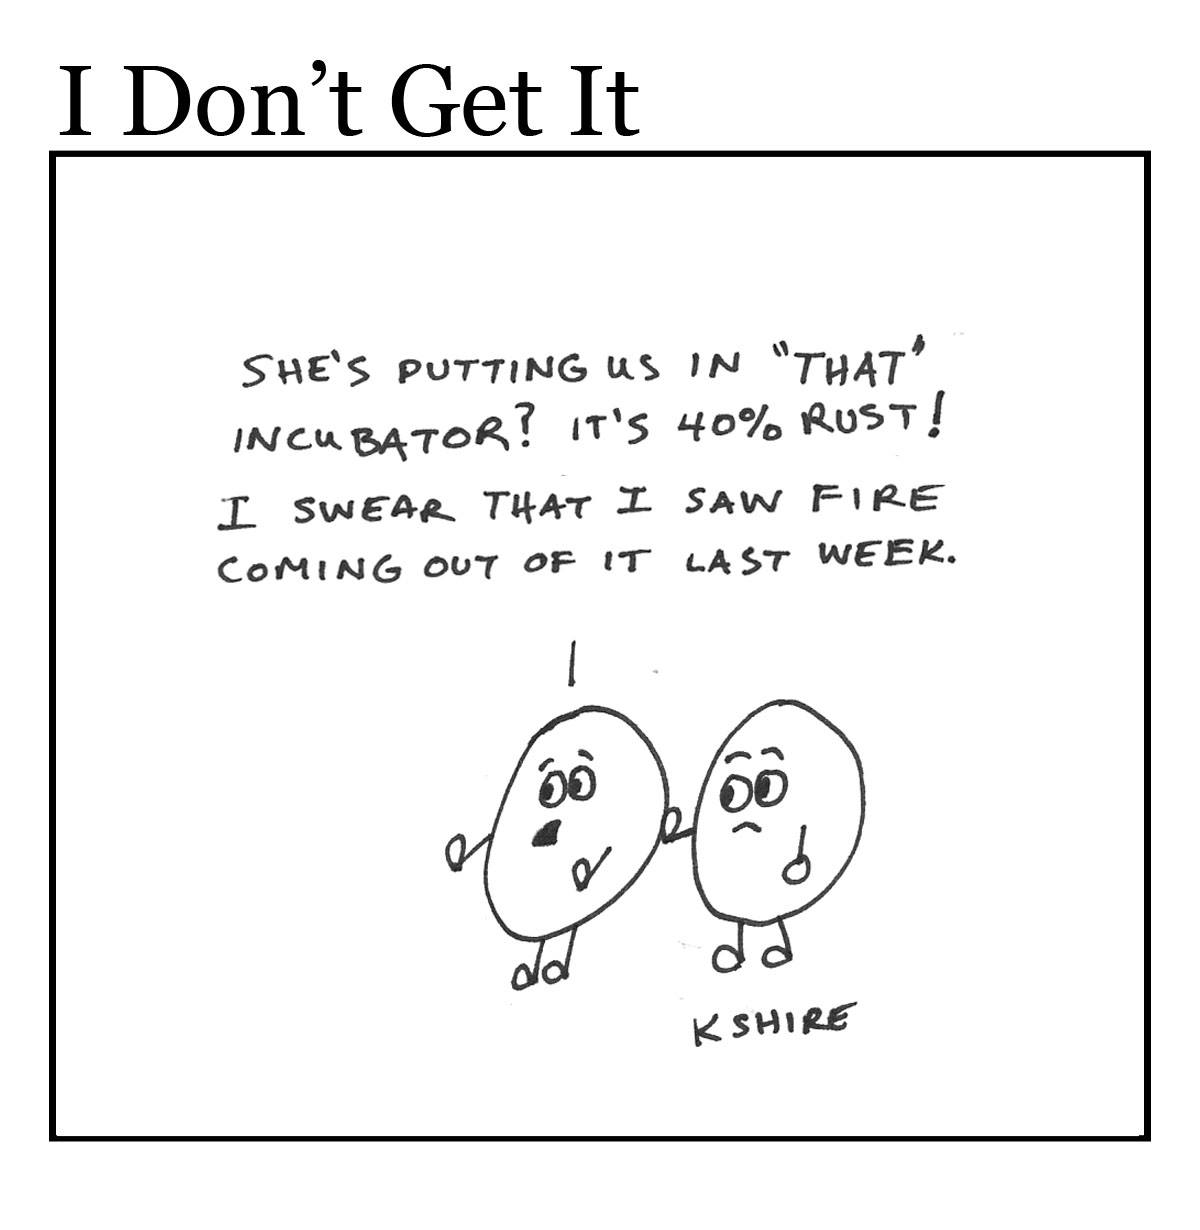 I Don’t Get It
SHE'S PUTTING US IN "THAT"
INCUBATOR? IT'S 40% RUST!
I SWEAR THAT I SAW FIRE
COMING OUT OF IT LAST WEEK.
KSHIRE